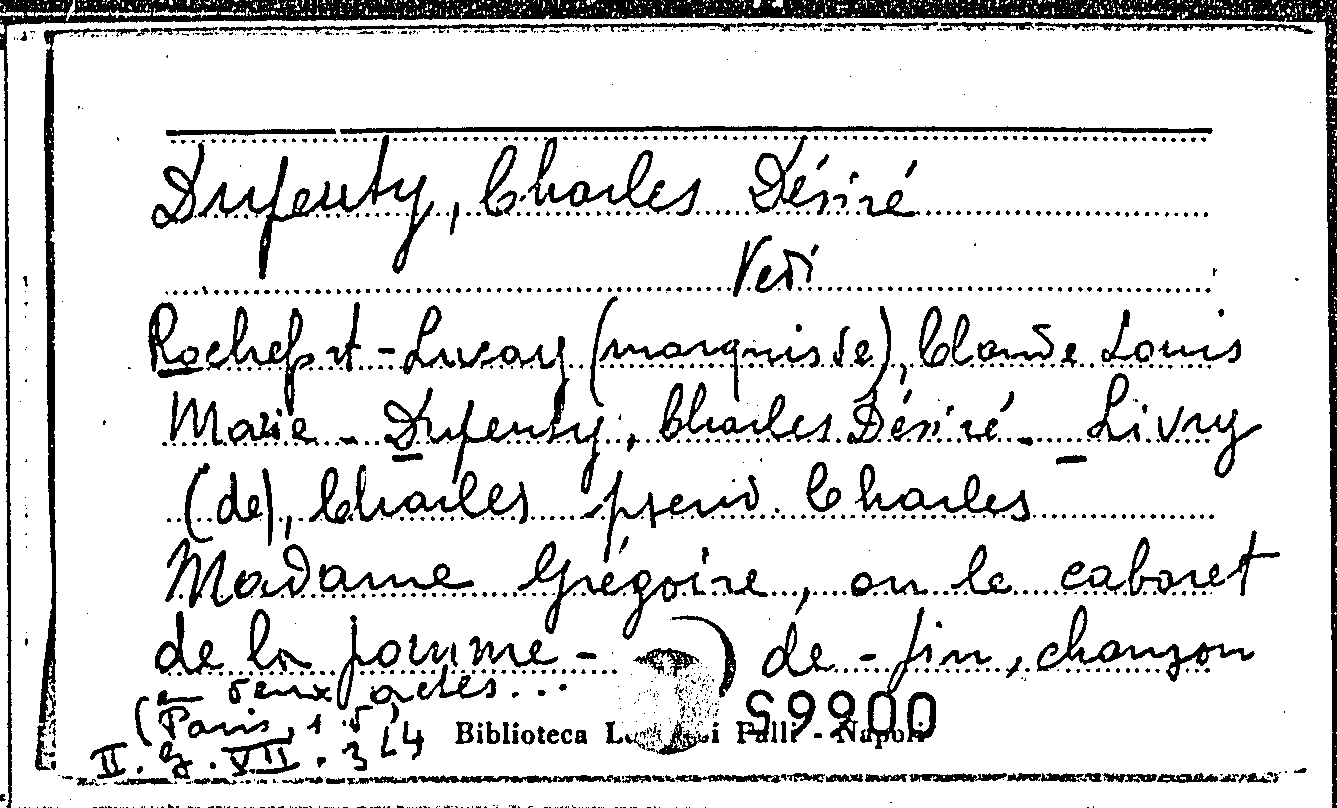 Dupeuty, Charles Désiré
Vedi
Rochefort-Lucay (marquis de), Claude Louis
Marie - Dupeuty, Charles Désiré - Livry
(de), Charles pseud. Charles
Madame Grégoire, ou le cabaret
de la pomme- de-pin, chanson
en deux actes...
(Paris, 1
II. G. VII. 3
Biblioteca Palli - Napoli